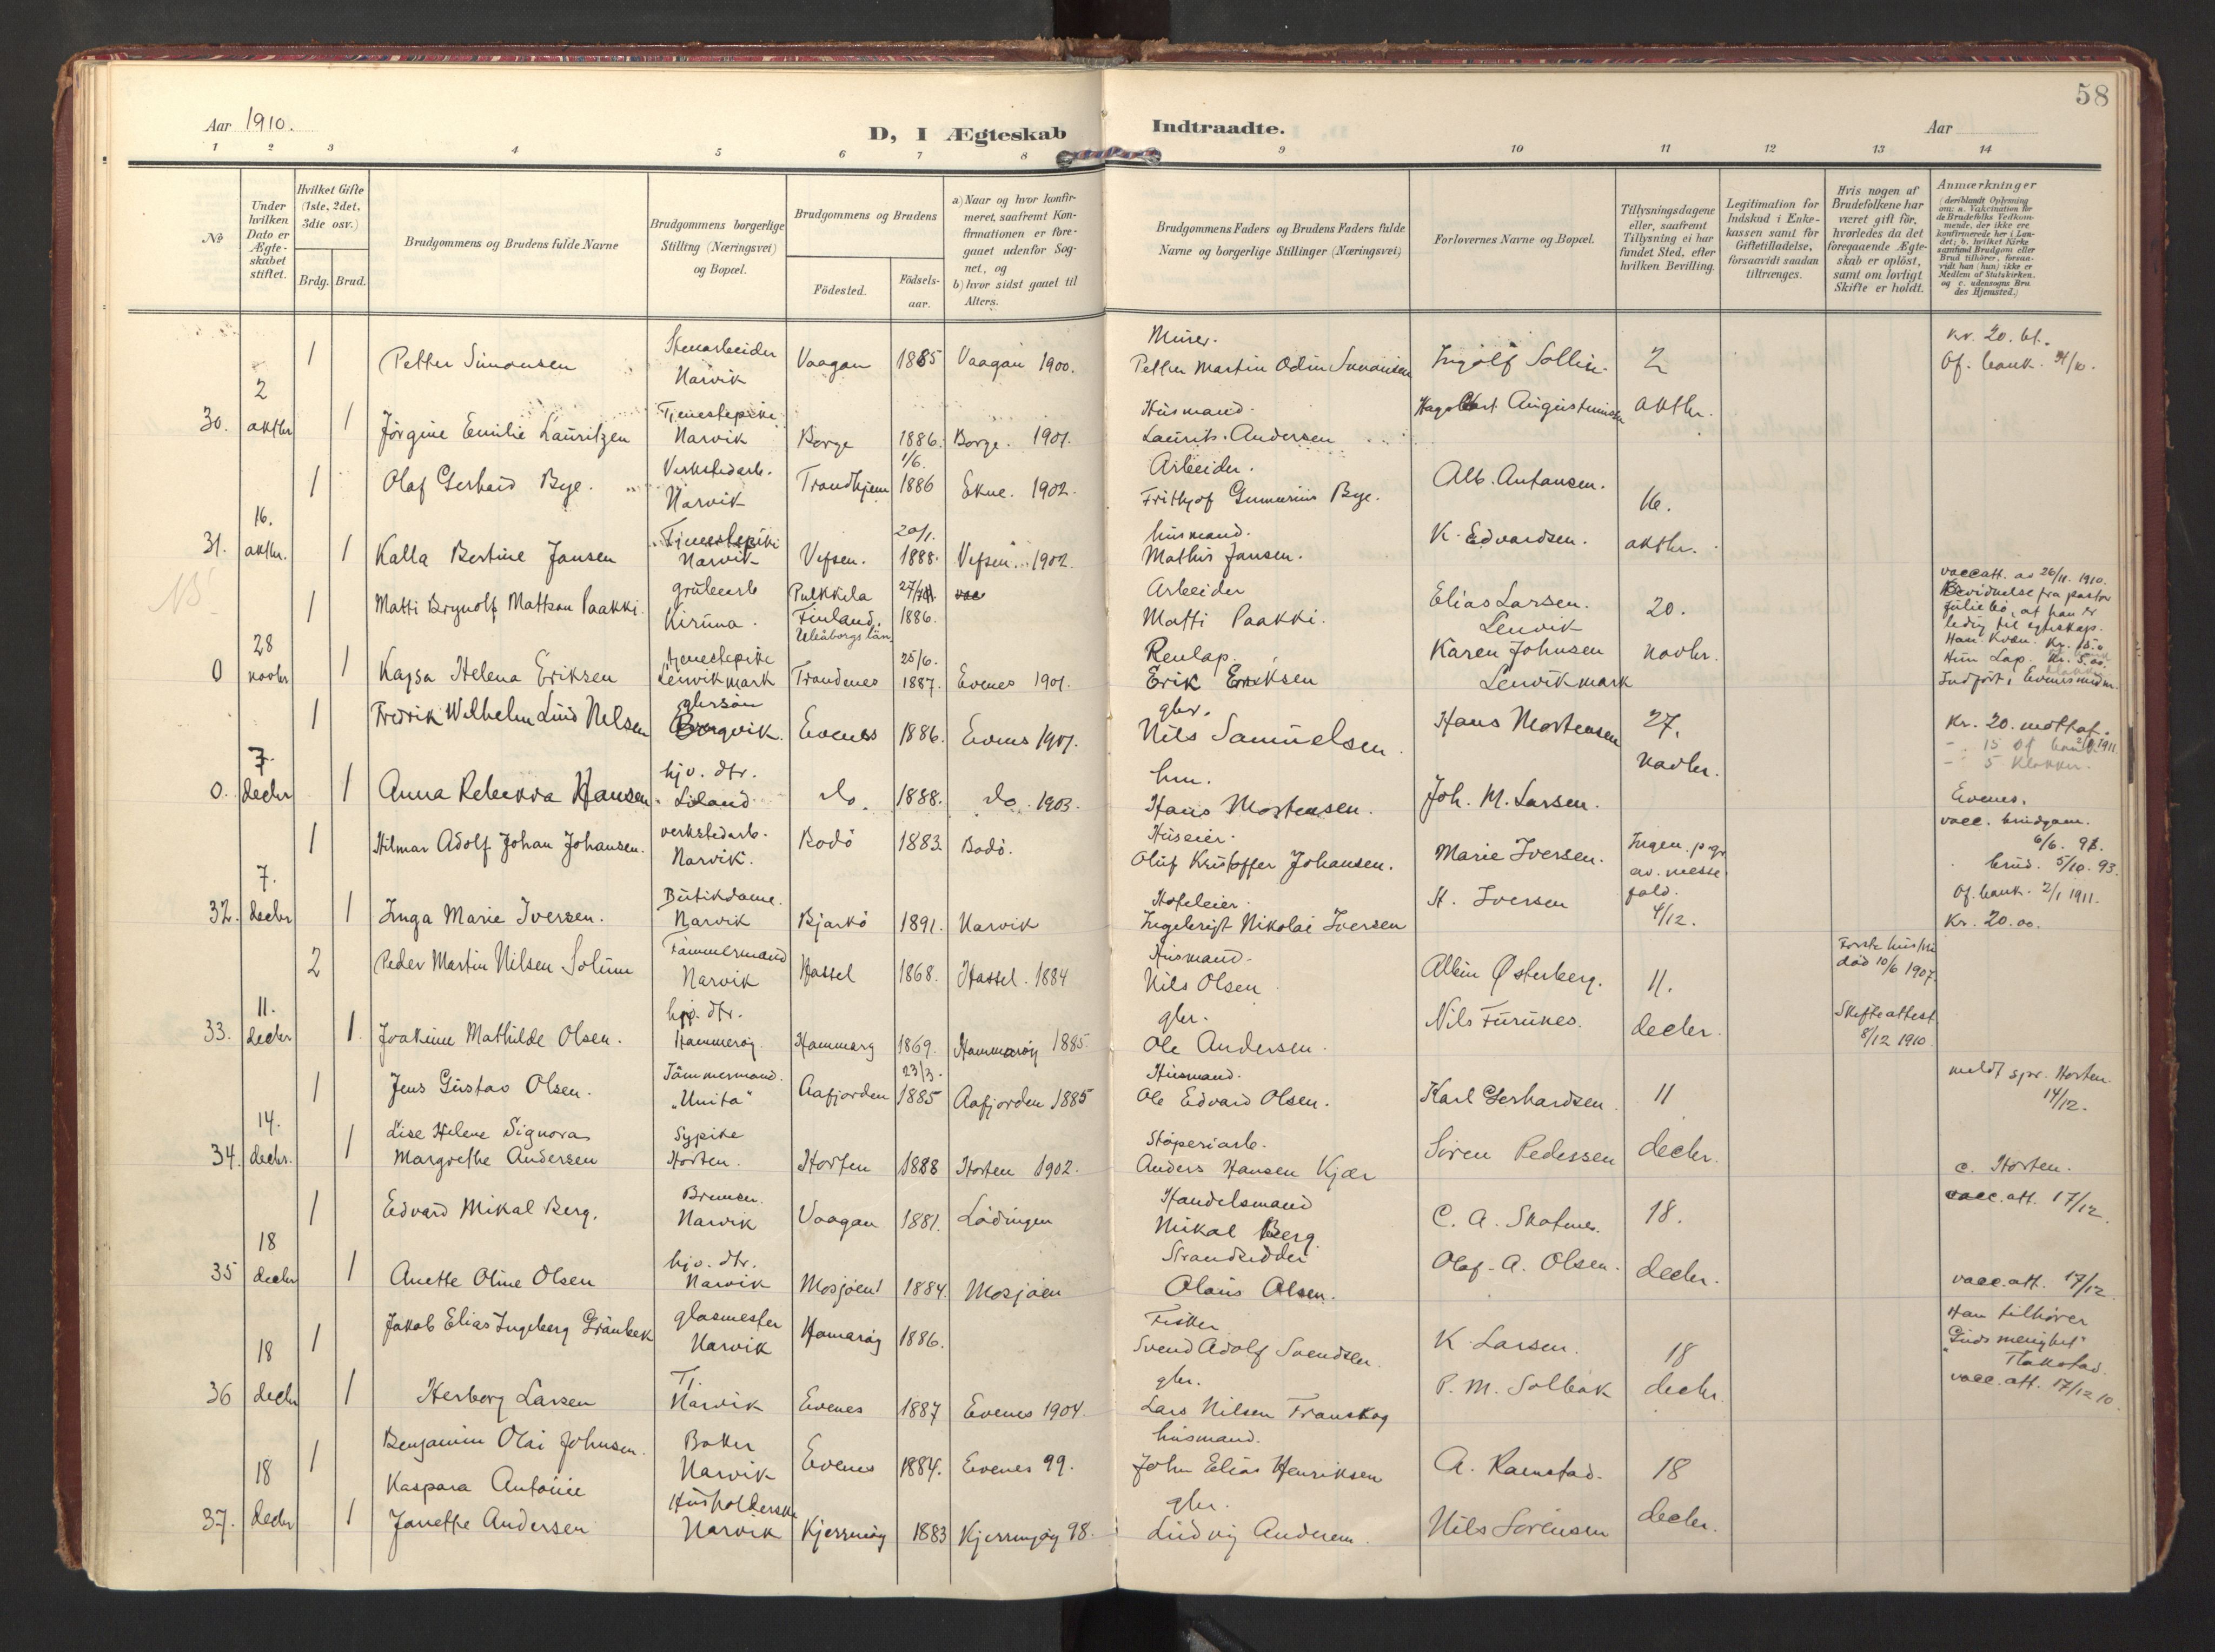 58
Aar 1910.
D, I Ægteskab Indtraadte.
Aar
1 2 3 4 5 6 7 8 9 10 11 12 13 14
No
Under hvilken Dato er Ægteskabet stiftet.
Hvilket Gifte (1ste, 2det, 3die osv.)
Brdg. Brud.
Brudgommens og Brudens fulde Navne
Brudgommens borgerlige Stilling (Næringsvei) og Bopæl.
Brudgommens og Brudens
Födested.
Födsels-aar.
a) Naar og hvor konfirmeret, saafremt Konfirmationen er foregaaet udenfor Sognet, og
b) hvor sidst gaaet til Alters.
Brudgommens Faders og Brudens Faders fulde Navne og borgerlige Stillinger (Næringsvei)
Forlovernes Navne og Bopæl.
Tillysningsdagene eller, saafremt Tillysning ei har fundet Sted, efter hvilken Bevilling.
Legitimation for Indskud i Enkekassen samt for Giftetilladelse, forsaavidt saadan tiltrænges.
Hvis nogen af Brudefolkene har været gift för, hvorledes da det foregaaende Ægteskab er oplöst, samt om lovligt Skifte er holdt.
Anmærkninger (deriblandt Oplysning om: a. Vakcination for de Brudefolks Vedkommende, der ikke ere konfirmerede her i Landet; b. hvilket Kirkesamfund Brudgom eller Brud tilhörer, forsaavidt han (hun) ikke er Medlem af Statskirken, og c. udensogns Brudes Hjemsted.)
1 Petter Simonsen Stenarbeider Narvik Vaagan 1885 Vaagan 1900. Murer. Petter Martin Odin Simonsen Ingolf Sollin. 2 kr. 20. bt. Of. bank. 31/10.
30. 2 oktbr 1 Jörgine Emilie Lauritzen Tjenestepike Narvik Borge 1886. Borge. 1901. Husmand. Laurits Andersen Augustinusen oktbr.
1 Olaf Gerhard Bye. Verkstedarb. Narvik Trondhjem 1/6. 1886 Ekne. 1902. Arbeider. Frithjof Gunnerius Bye. Alb. Antonsen. 16.
31. 16. oktbr. 1 Kalla Bertine Jansen Tjenestepike Narvik Vefsen. 20/1. 1888. Vefsen. 1902. husmand. Mathis Jansen. K. Edvardsen. oktbr.
1 Matti Brynolf Mattson Paakki. grubearb Kiruna. Pulkkila Finland. Uleåborgs län 1886. Arbeider Matti Paakki. Elias Larsen. Lenvik 20. vaccatt. av 26/11. 1910. Bevidnelse fra pastor at han er ledig til egteskap. Han. Kvæn. Kr. 15.
0 28 novbr 1 Kajsa Helena Eriksen tjenestepike Lenvikmark Trondenes 25/6. 1887. Evenes 1901. Renlap. Erik Eriksen Karen Johnsen Lenvikmark novbr. Hun Lap. Kr. 5.00. Indført i Evenes
1 Fredrik Wilhelm Lind Nilsen gbrsön Bergvik. Evenes 1886. Evenes 1901. gbr. Nils Samuelsen Hans Mortensen 27. Kr. 20. mottat. 15 Of bank 1911. 5 Klokker.
0. 7. decbr 1 Anna Rebekka Hansen. hjv. dtr. Liland do. 1888. do. 1903. hm. Hans Mortensen. Joh. M. Larsen. novbr. Evenes.
1 Hilmar Adolf Johan Johansen. verkstedarb. Narvik. Bodö 1883 Bodö. Huseier. Oluf Kristoffer Johansen. Marie Iversen. Ingen p. gr. av. messefald. 4/12. vacc. brudgom. 6/6. brud. 5/10. 93.
32. 7. decbr 1 Inga Marie Iversen. Butikdame. Narvik Bjarkö 1891. Narvik Hoteleier. Ingebrigt Nikolai Iversen H. Iversen Of. bank. 2/1 1911. Kr. 20.00.
2 Peder Martin Nilsen Solum Tömmermand Narvik Hassel 1868. Hassel. 1884 Husmand. Nils Olsen Albin Østerberg. 11. Förste hustru död 10/6 1907.
33. 11. decbr 1. Joakime Mathilde Olsen. hjv. dtr. Hammeröy. Hammeröy 1869. Hammeröy 1885. gbr. Ole Andersen. Nils Furunes. decbr. Skifteattest 8/12 1910.
1 Jens Gustav Olsen. Tömmermand. "Unita" Aafjorden 23/3. 1885 Aafjorden 1885 Husmand. Ole Edvard Olsen. Karl Gerhardsen. 11 meldt spr. Horten. 14/12.
34. 14. decbr. 1 Lise Helene Signora Margrethe Andersen Sypike Horten. Horten 1888 Horten 1902. Stöperiarb. Anders Hansen Kjær Sören Pedersen decbr. c. Horten.
1 Edvard Mikal Berg. Bremser. Narvik Vaagan 1881. Lödingen Handelsmand Mikal Berg. C. A. 18. vacc. att. 17/12.
35 18 decbr 1 Anette Oline Olsen hjv. dtr. Narvik Mosjöen 1884. Mosjöen Strandsidder Olaus Olsen. Olaf. A. Olsen. decbr. vacc. att. 17/12.
1 Jakob Elias Ingeberg Grönbæk glasmester Narvik Hamaröy 1886. Fisker Svend Adolf Svendsen. K. Larsen. 18 Han tilhörer "Guds menighet" Flakstad.
36 18 decbr 1 Herborg Larsen Tj. Narvik Evenes 1887 Evenes 1904. gbr. Lars Nilsen Franskog P. M. Solbak decbr vacc. att. 17/12 10.
1 Benjamin Olai Johnsen. Baker Narvik Evenes 1884. Evenes 99. husmand. John Elias Henriksen A. Ramstad. 18
37. 18 decbr 1 Kaspara Antonie Janethe Andersen Husholderske Narvik Kjerringöy 1883 Kjerringöy 98. gbr. Ludvig Andersen. Nils Sörensen decbr.